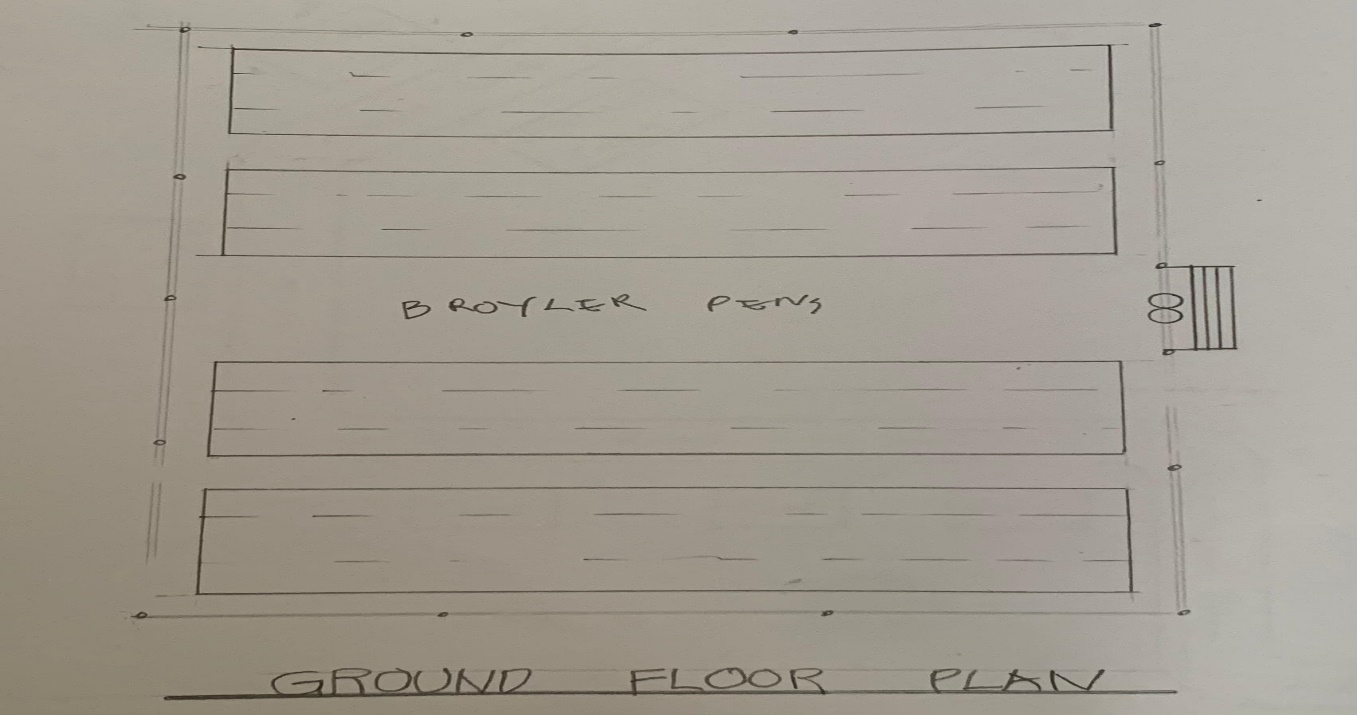 BROYLER PENS
GROUND FLOOR PLAN